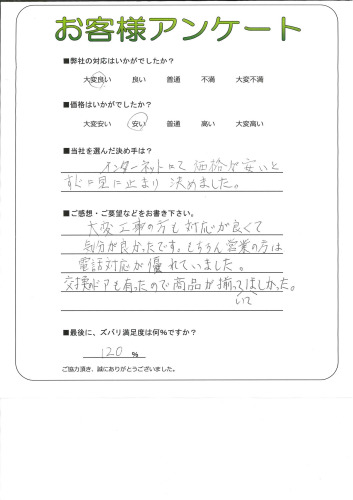 お客様アンケート
■弊社の対応はいかがでしたか？
大変良い 良い 普通 不満 大変不満
■価格はいかがでしたか？
大変安い 安い 普通 高い 大変高い
■当社を選んだ決め手は？
インターネットにて価格が安いと
すぐに目に止まり決めました。
■ご感想・ご要望などをお書き下さい。
大変工事の方も対応が良くて
気分が良かったです。もちろん営業の方は
電話対応が優れていました。
交換ドアも有ったので商品が揃ってほしかった。
いて
■最後に、ズバリ満足度は何%ですか？
120 %
ご協力頂き、誠にありがとうございました。